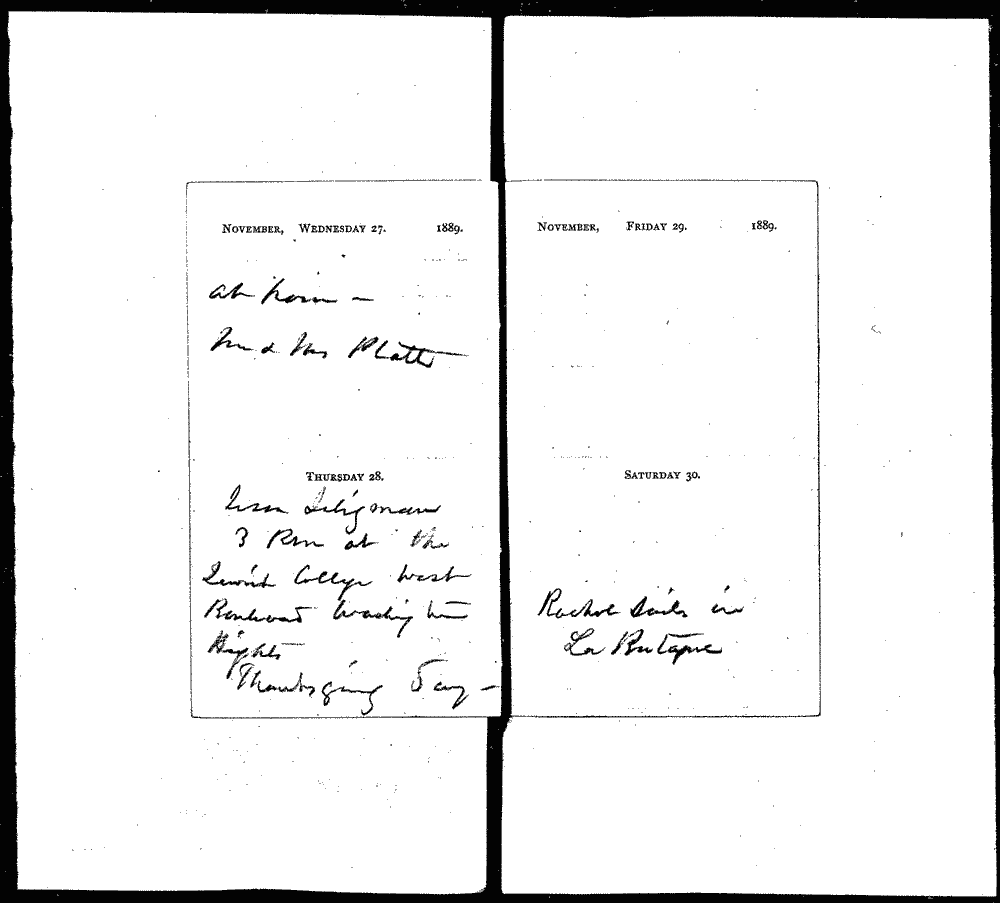 NOVEMBER, WEDNESDAY 27. 1889.
at home –
Mr & Mrs Platt
THURSDAY 28.
Seligman
3 Pm at the
Jewish College West
Boulevard Washington
Hights
Thanksgiving Day –
NOVEMBER, FRIDAY 29. 1889.
SATURDAY 30.
Rachel Sails in
La Bretagne